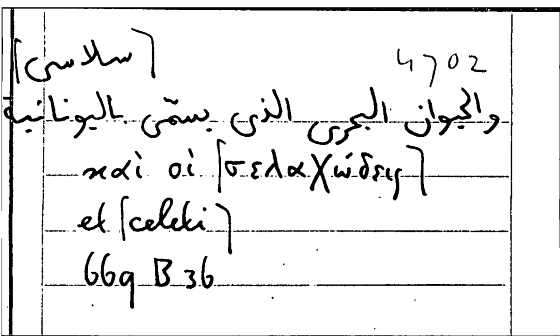 [سلاسى]
4702
والحيوان البحرى الذى يسمّى باليونانية
καὶ οἱ [σελαχώδεις]
et [celeti]
669 B 36